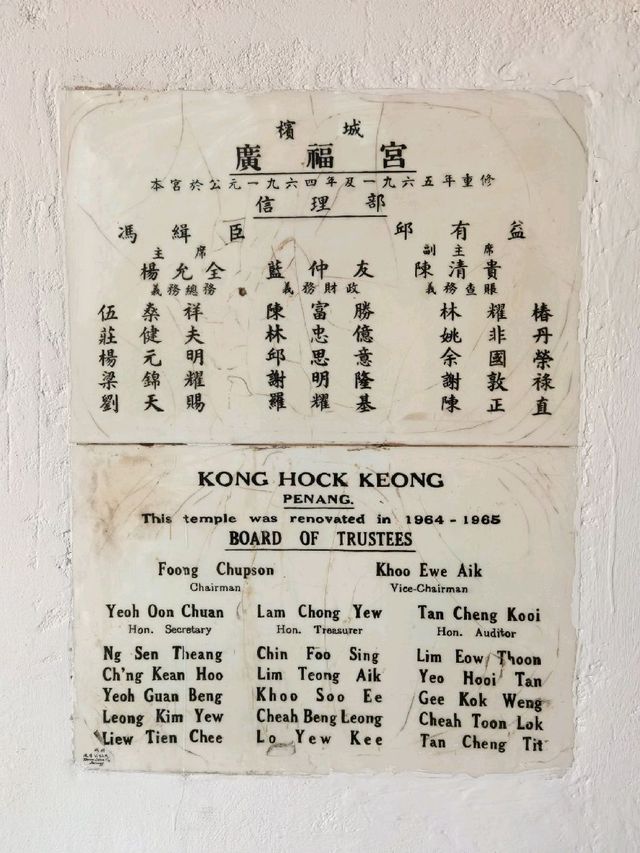 檳城
廣福宮
本宮於公元一九六四年及一九六五年重修
信理部
馮緝臣 邱有益
主席 副主席
楊允全 藍仲友 陳清貴
義務總務 義務財政 義務查賬
伍桑祥 陳富勝 林耀椿
莊健夫 林忠億 姚非丹
楊元明 邱思意 余國榮
梁錦耀 謝明隆 謝敦祿
劉天賜 羅耀基 陳正直
KONG HOCK KEONG
PENANG.
This temple was renovated in 1964 - 1965
BOARD OF TRUSTEES
Foong Chupson Khoo Ewe Aik
Chairman Vice-Chairman
Yeoh Oon Chuan Lam Chong Yew Tan Cheng Kooi
Hon. Secretary Hon. Treasurer Hon. Auditor
Ng Sen Theang Chin Foo Sing Lim Eow Thoon
Ch'ng Kean Hoo Lim Teong Aik Yeo Hooi Tan
Yeoh Guan Beng Khoo Soo Ee Gee Kok Weng
Leong Kim Yew Cheah Beng Leong Cheah Toon Lok
Liew Tien Chee Lo Yew Kee Tan Cheng Tit